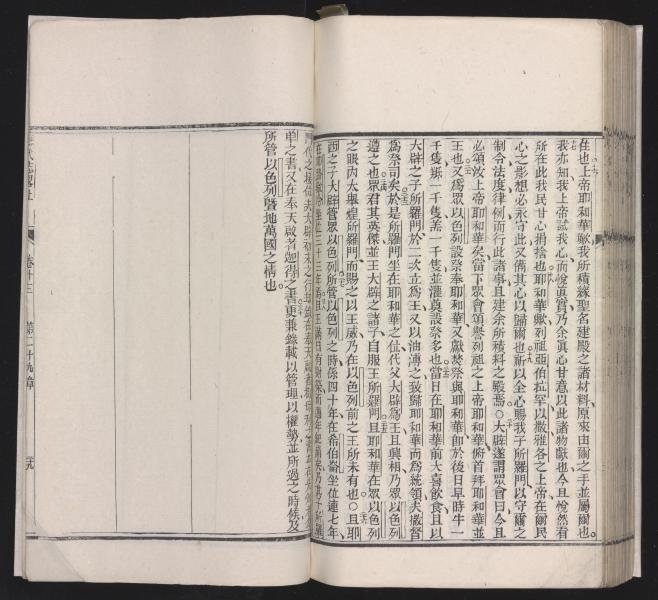 在也上帝耶和華歟我所積緣聖名建殿之諸材料原來由爾之手並屬爾也
我亦知我上帝試我心而悅真實乃余眞心甘意以此諸物獻也今且悅然看
所在此我民甘心捐捨也耶和華歟列祖亞伯拉罕以撒雅各之上帝在爾民
心之影想必永守此又備其心以歸爾也祈以全心賜我子所羅門以守爾之
制令法度律例而行此諸事且建余所積料之殿焉○大辟遂謂眾會曰今且
必頌汝上帝耶和華矣當下眾會頌譽列祖之上帝耶和華俯首拜耶和華並
王也又爲眾以色列設祭奉耶和華又獻焚祭與耶和華卽於後日早時牛一
千隻羝一千隻羔一千隻並灌奠設祭多也當日在耶和華前大喜飲食且以
大辟之子所羅門於二次立爲王又以油傅之致歸耶和華而爲統領夫撒督
爲祭司矣於是所羅門坐在耶和華之位代父大辟爲王且興相乃眾以色列
遵之也眾君其英傑並王大辟之諸子自服王所羅門且耶和華在眾以色列
之眼內太舉煌所羅門而賜之以王威乃在以色列前之王所未有也○且耶
西之子大辟管眾以色列所管以色列之時係四十年在希伯崙坐位連七年
在
單之書又在奉天啟者迦得之書更兼錄載以管理以權勢並所過之時候及
所管以色列曁地萬國之情也
卷十三 第二十九章